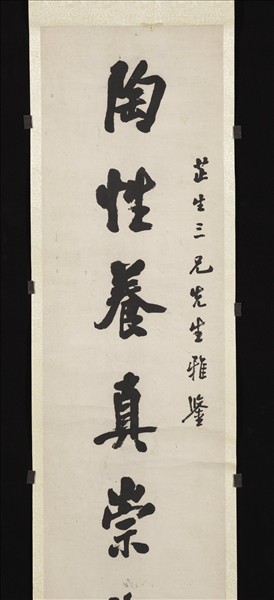 芷生三兄先生雅鑒
陶性養真崇